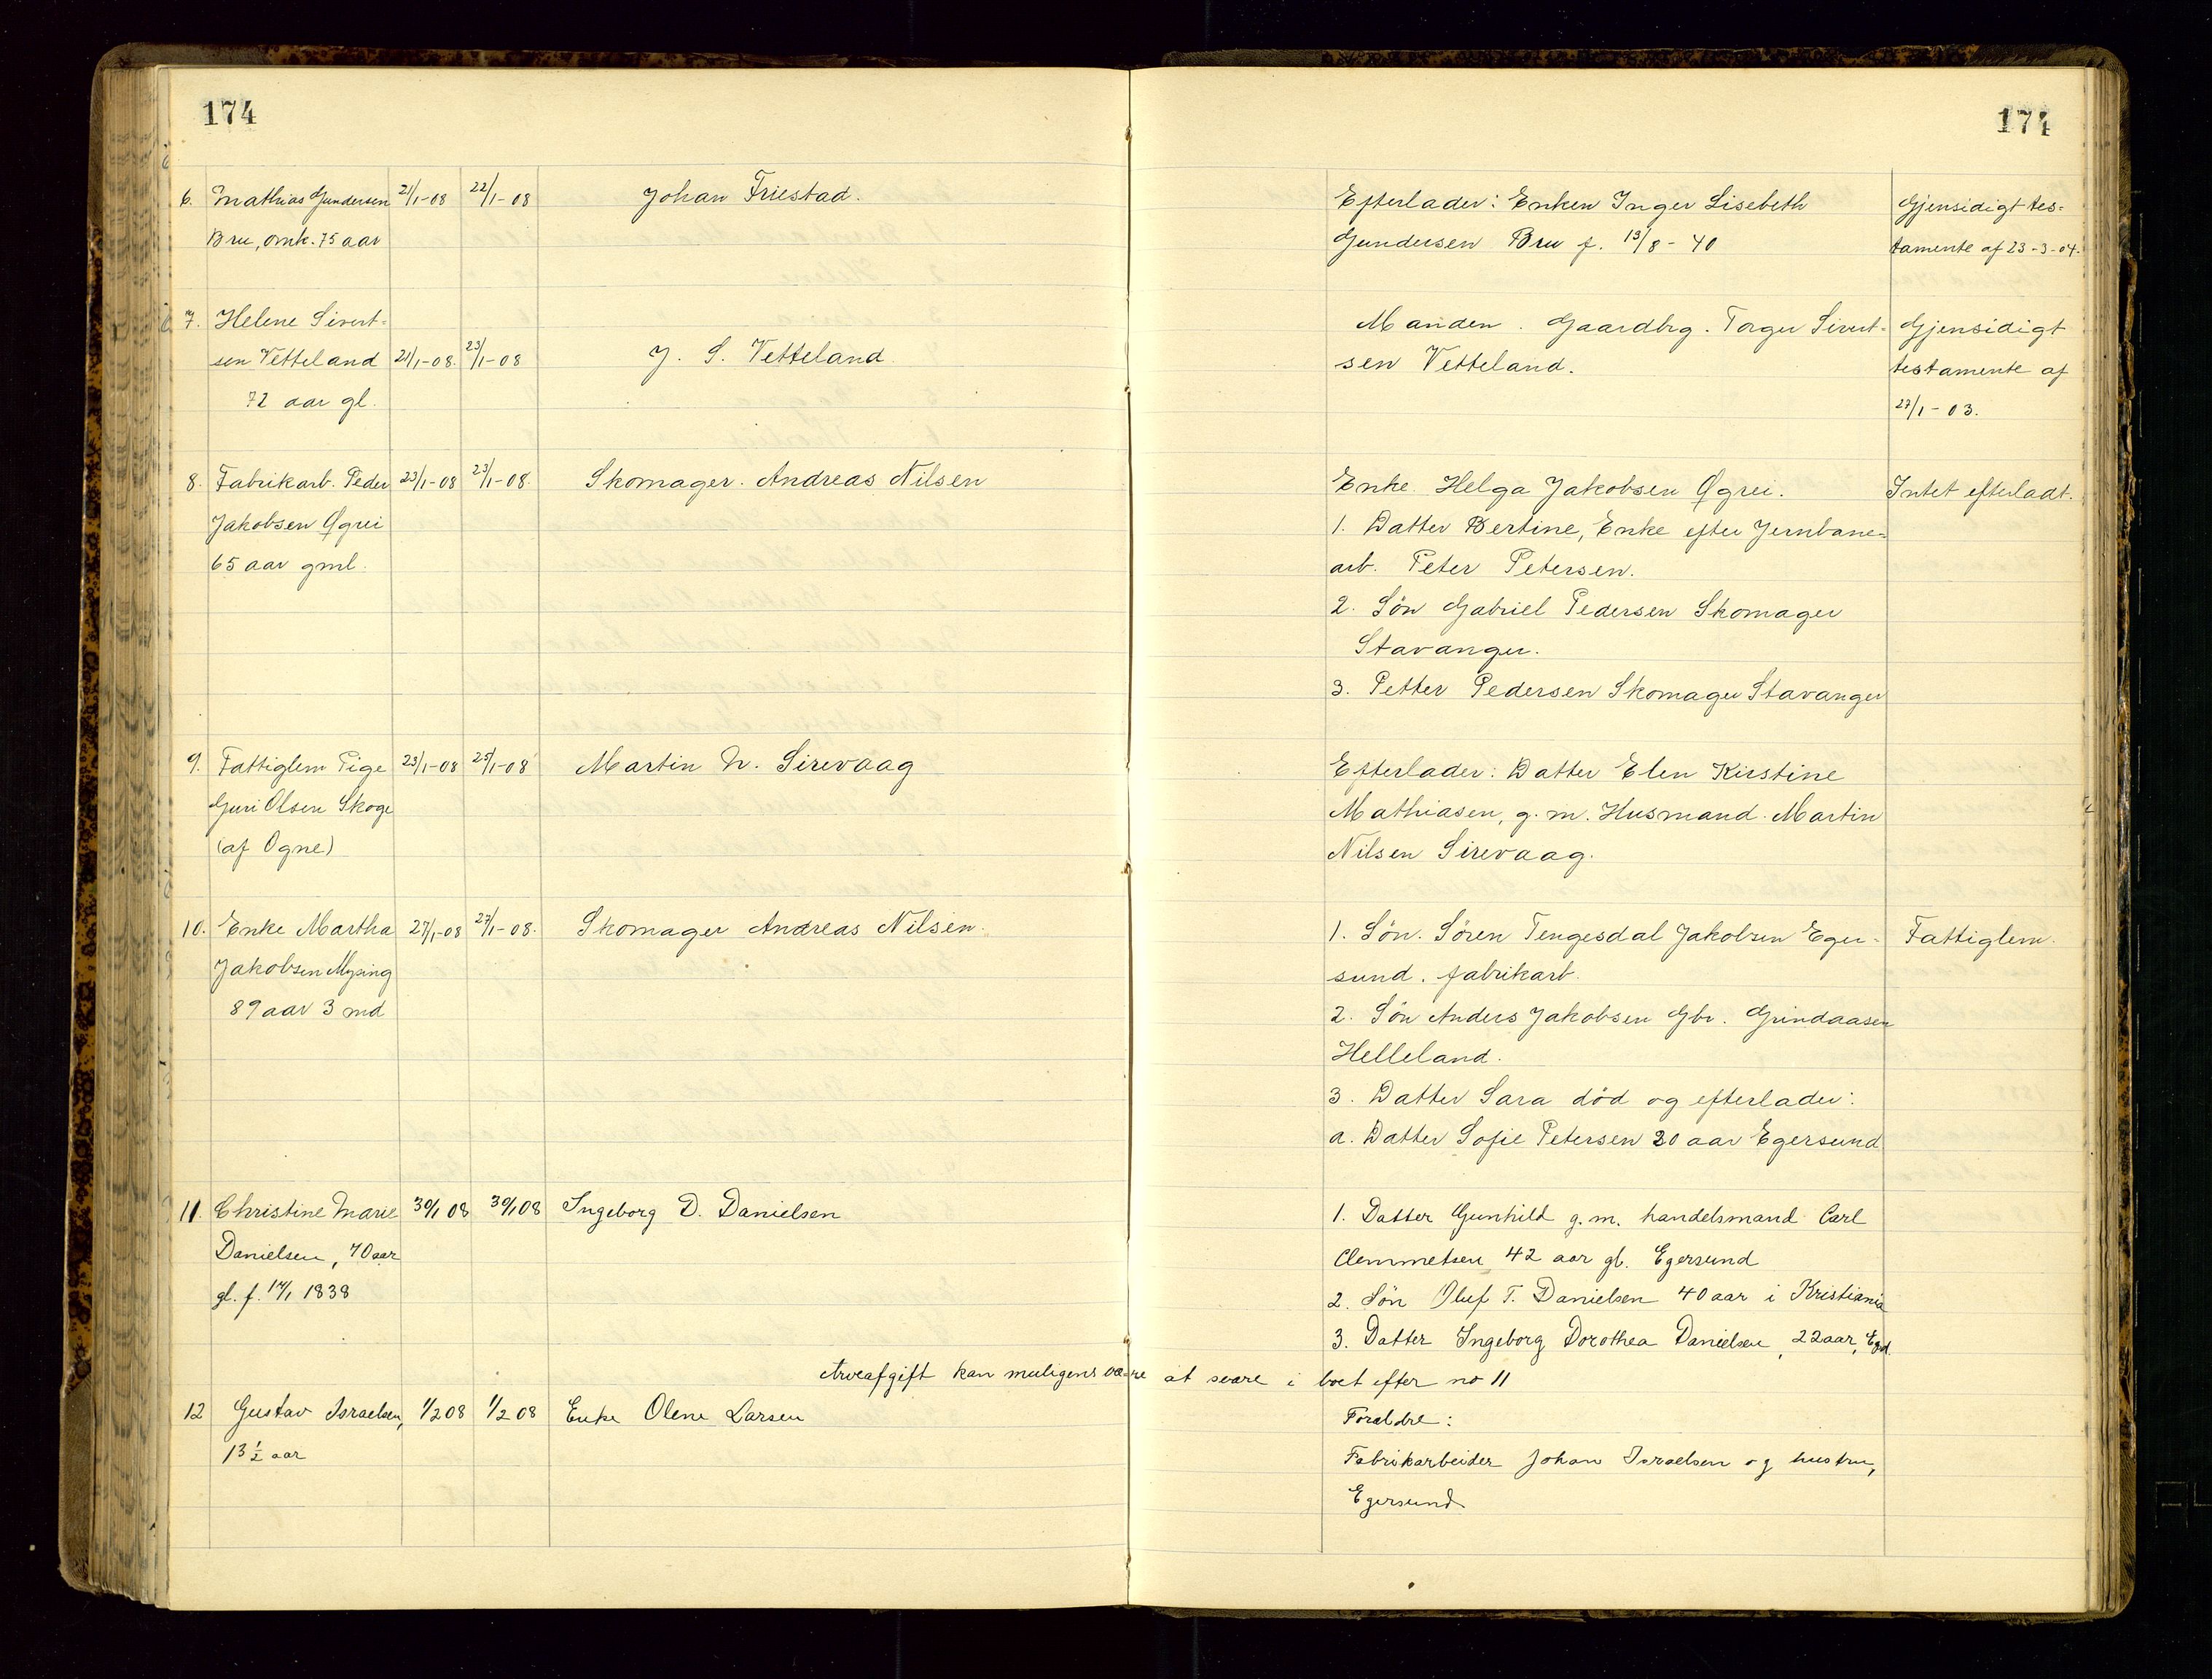 174
174
6. Mathias Gundersen 21/1-08 22/1-08 Johan Friestad.
Bru, omk. 75 aar
Efterlader: Enken Inger Lisebeth
Gundersen Bru f. 13/8-40
Gjensidigt tes-
tamente af 23-3-04.
7. Helene Sivert-
sen Vetteland 21/1-08. 23/1-08 J. S. Vetteland
72 aar gl.
Manden. Gaardbrg. Torger Sivert-
sen Vetteland.
Gjensidigt
testamente af
27/1-03.
8. Fabrikarb. Peder 23/1-08 23/1-08. Skomager. Andreas Nilsen
Jakobsen Øgrei
65 aar gml.
Enke Helga Jakobsen Øgrei.
1. Datter Bertine, Enke efter Jernbane-
arb. Peter Petersen.
2. Sön Gabriel Pedersen Skomager
Stavanger.
3. Petter Pedersen Skomager Stavanger
Intet efterladt.
9. Fattiglem Pige 23/1-08 25/1-08 Martin N. Sirevaag
Guri Olsen Skoge
(af Ogne)
Efterlader: Datter Elen Kirstine
Mathiasen, g. m. Husmand. Martin
Nilsen Sirevaag.
10. Enke Martha 27/1-08 27/1-08. Skomager Andreas Nilsen.
Jakobsen Mysing
89 aar 3 md
1. Sön. Sören Tengesdal Jakobsen Eger-
sund. fabrikarb.
2. Sön Anders Jakobsen Gbr. Grindaasen
Helleland.
3. Datter Sara död og efterlader:
a. Datter Sofie Petersen 20 aar Egersund
Fattiglem.
11. Christine Marie 30/1 08 30/1 08 Ingeborg D. Danielsen
Danielsen, 70 aar
gl. f. 14/1 1838
1. Datter Gunhild g. m. handelsmand Carl
Clemmetsen 42 aar gl. Egersund
2. Sön Oluf T. Danielsen 40 aar i Kristiania
3. Datter Ingeborg Dorothea Danielsen, 22 aar, Egsd.
Arveafgift kan muligens være at svare i boet efter no 11
12 Gustav Israelsen, 1/2 08 1/2 08 Enke Olene Larsen
13 1/2 aar
Foraldre:
Fabrikarbeider Johan Israelsen og hustru,
Egersund.